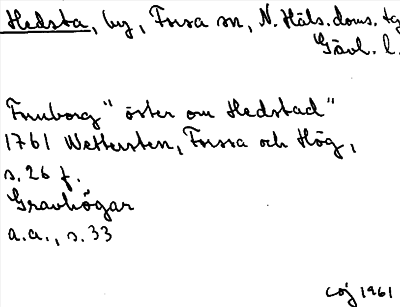 Hedsta, by, Forsa sn, N. Häls. doms. tg
Gävl. l.
Fornborg "öster om Hedstad"
1761 Wettersten, Forssa och Hög,
s. 26 f.
Gravhögar
a.a., s. 33
COJ 1961